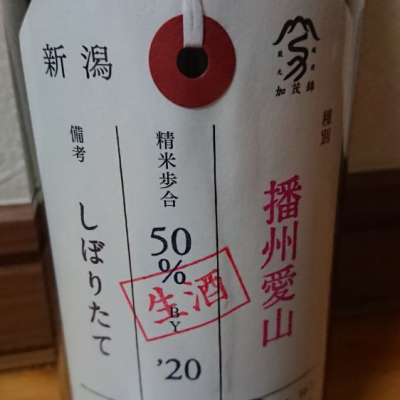 加茂錦
種別
播州愛山
精米歩合
50%
BY
'20
生酒
新潟
備考
しぼりたて